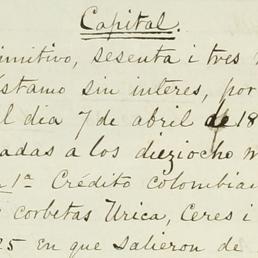 Capital.
imitivo, sesenta i tres
stamo sin interes, por
l dia 7 de abril de 18
adas a los dieziocho m
1a Crédito colombia
corbetas Urica, Ceres i
25 en que salieron de